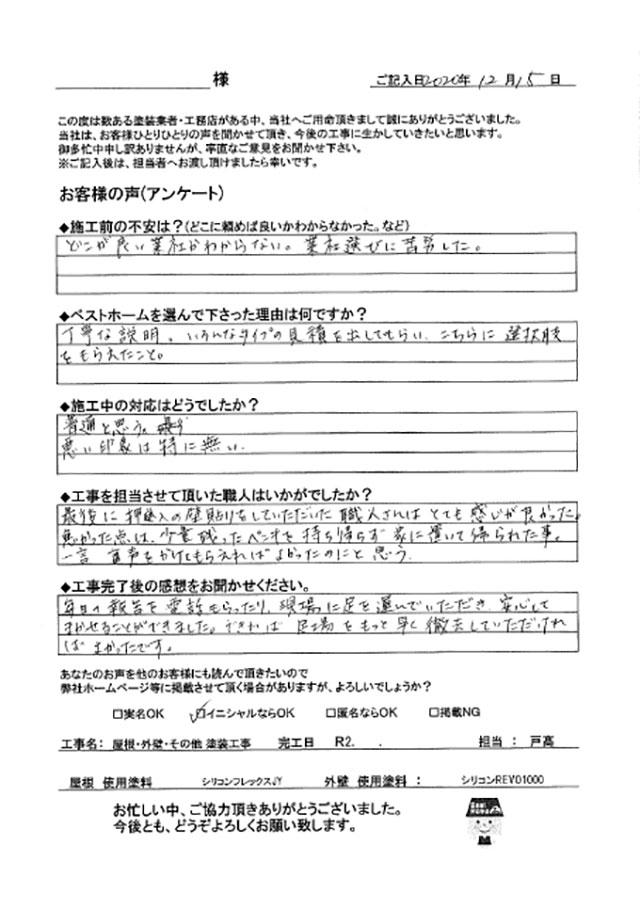 様
ご記入日2020年 12月15日
この度は数ある塗装業者・工務店がある中、当社へご用命頂きまして誠にありがとうございました。
当社は、お客様ひとりひとりの声を聞かせて頂き、今後の工事に生かしていきたいと思います。
御多忙中申し訳ありませんが、率直なご意見をお聞かせ下さい。
※ご記入後は、担当者へお渡し頂けましたら幸いです。
お客様の声(アンケート)
◆施工前の不安は?(どこに頼めば良いかわからなかった。など)
どこが良い業社かわからない。業社選びに苦労した。
◆ベストホームを選んで下さった理由は何ですか?
丁寧な説明。いろんなタイプの見積を出してもらい、こちらに選択肢
をもらえたこと。
◆施工中の対応はどうでしたか?
普通と思う。
悪い印象は特に無い。
◆工事を担当させて頂いた職人はいかがでしたか?
最後に押入の壁貼りをしていただいた職人さんはとても感じが良かった。
悪かった点は、少量残ったペンキを持ち帰らず家に置いて帰られた事。
一言 声をかけてもらえればよかったのにと思う。
◆工事完了後の感想をお聞かせください。
毎日の報告を電話もらったり、現場に足を運んでいただき、安心して
まかせることができました。できれば 足場をもっと早く撤去していただけれ
ばよかったです。
あなたのお声を他のお客様にも読んで頂きたいので
弊社ホームページ等に掲載させて頂く場合がありますが、よろしいでしょうか?
□実名OK ☑イニシャルならOK □匿名ならOK □掲載NG
工事名: 屋根・外壁・その他 塗装工事 完工日 R2. . 担当 : 戸高
屋根 使用塗料 シリコンフレックスJY 外壁 使用塗料 : シリコンREVO1000
お忙しい中、ご協力頂きありがとうございました。
今後とも、どうぞよろしくお願い致します。